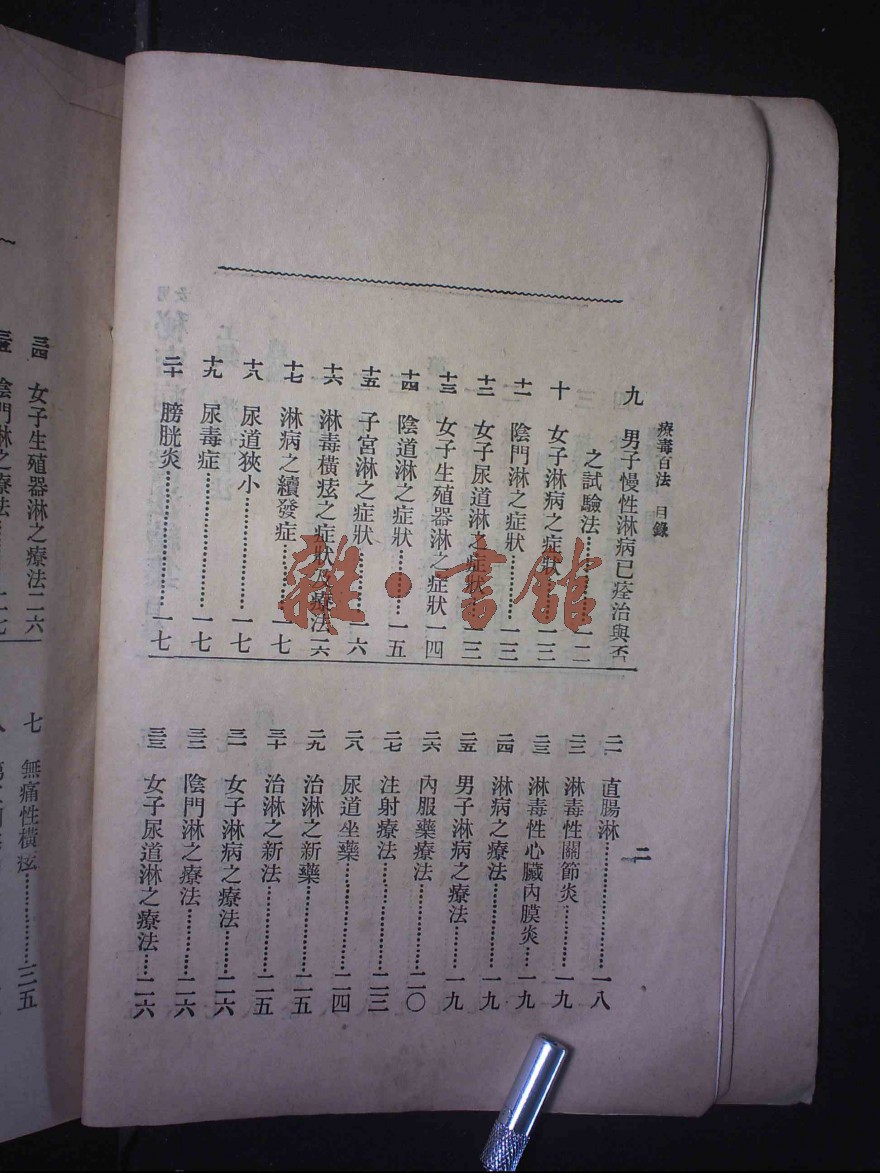 療毒百法 目錄
二
九 男子慢性淋病已痊治與否
之試驗法……一二
十 女子淋病之症狀……一三
十一 陰門淋之症狀……一三
十二 女子尿道淋之症狀…一三
十三 女子生殖器淋之症狀一四
十四 陰道淋之症狀……一五
十五 子宮淋之症狀……一六
十六 淋毒橫痃之症狀及療法一六
十七 淋病之續發症……一七
十八 尿道狹小……一七
十九 尿毒症……一七
二十 膀胱炎……一七
二一 直腸淋……一八
二二 淋毒性關節炎……一九
二三 淋毒性心臟內膜炎…一九
二四 淋病之療法……一九
二五 男子淋病之療法……一九
二六 內服藥療法……二〇
二七 注射療法……二三
二八 尿道坐藥……二四
二九 治淋之新藥……二五
三十 治淋之新法……二五
三一 女子淋病之療法……二六
三二 陰門淋之療法……二六
三三 女子尿道淋之療法…二六
三四 女子生殖器淋之療法二六
三五 陰門淋之療法……二七
七 無痛性橫痃……三五
雜·書館